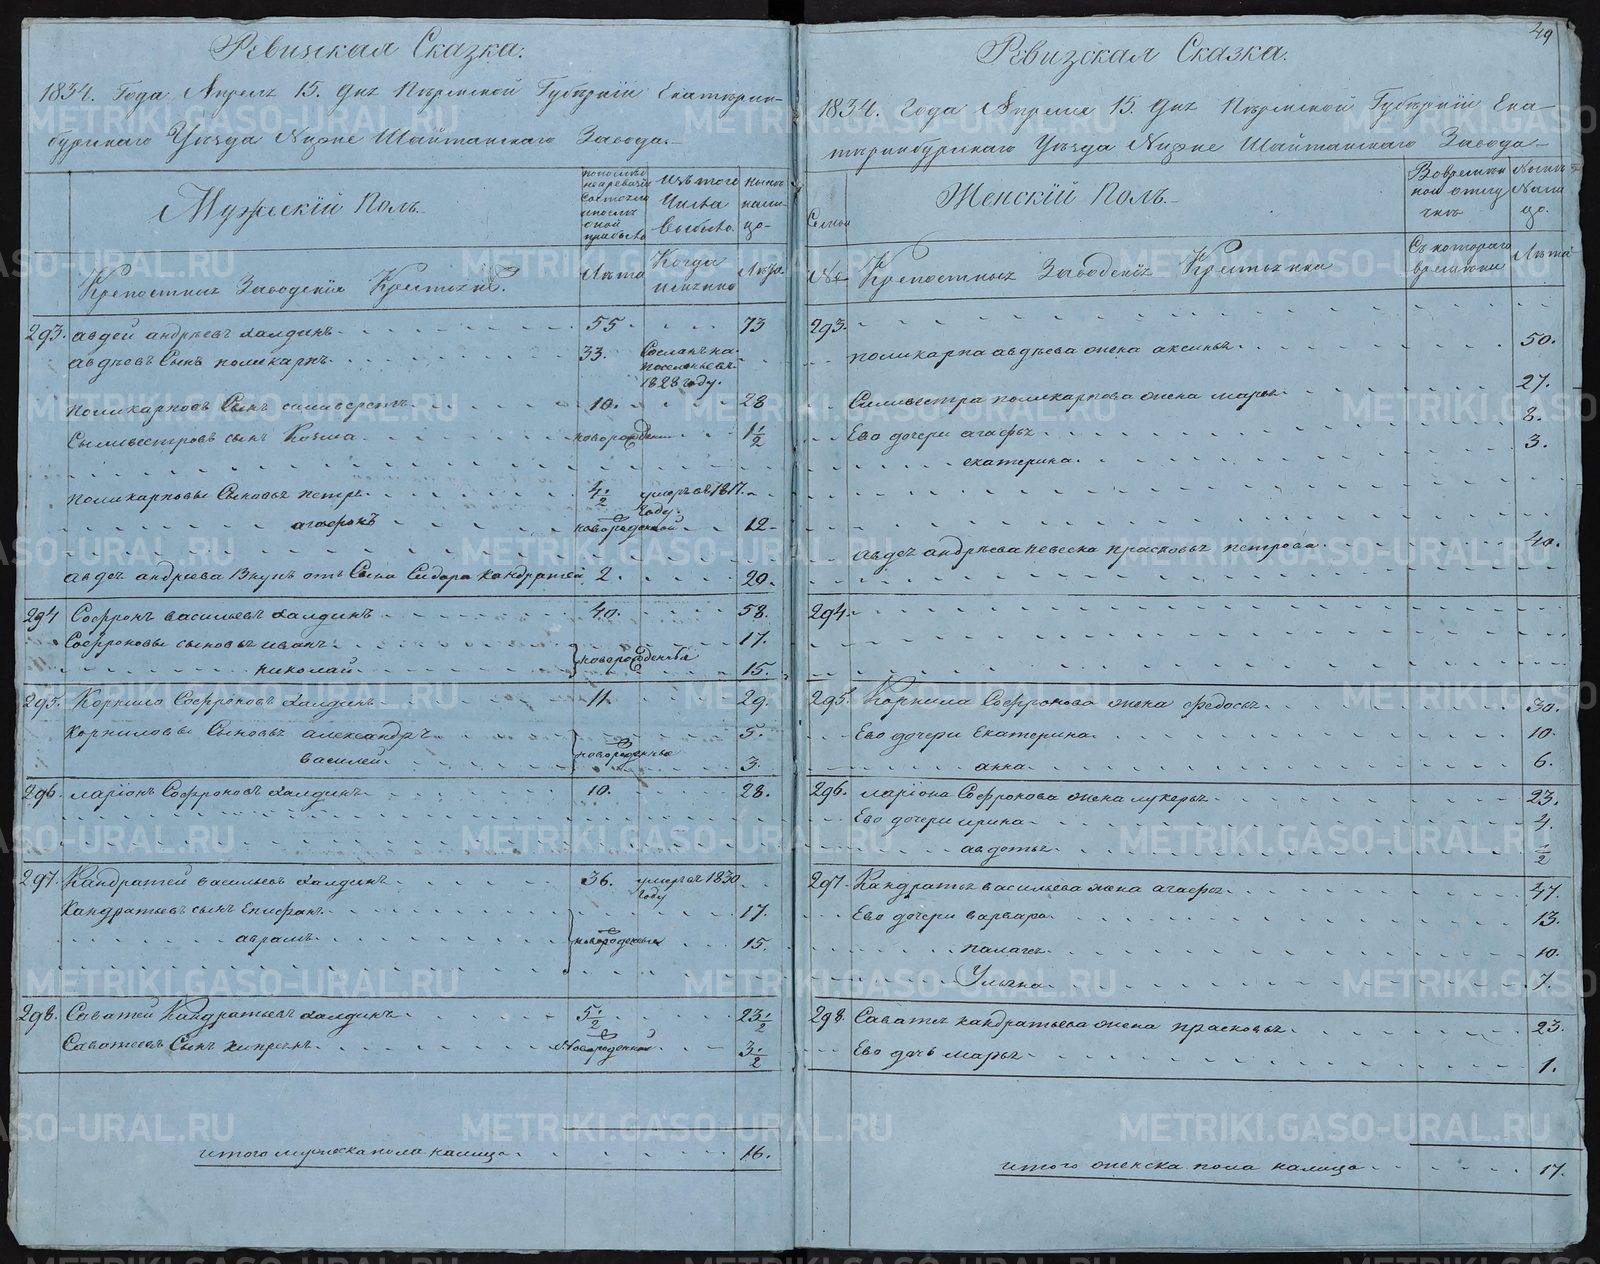 Ревизская Сказка.
1834. Года Апреля 15. дня Пермской Губернiи Екатерин-
бургскаго Уѣзда Нижне Шайтанскаго Завода.
Мужескiй Полъ.
изъ того числа выбыло.
Крепостныя Заводскiя Крестьяне.
Лѣта
Когда именно
Лѣта
293. авдей андрѣевъ Халдинъ 55 73
авдѣевъ Сынъ поликарпъ 33. Сосланъ на поселенье въ 1828 году.
поликарповъ Сынъ силиверстъ 10. 28
Сыливестровъ сынъ Козма новорожденный 1 1/2
поликарповы Сыновья петръ 4 1/2 умеръ въ 1817. году.
агафонъ новорожденной 12
авдея андрѣева Внукъ отъ Сына Сидора кандратей 2. 20.
294 Софронъ васильевъ Халдинъ 40. 58.
Софроновы сыновья иванъ 17.
николай новорожденныя 15.
295. Корнило Софроновъ Халдинъ 11 29.
Корниловы Сыновья александръ 5.
василей новорожденныя 3
296. ларiонъ Софроновъ Халдинъ 10. 28.
297. Кандратей васильевъ Халдинъ 36. умеръ въ 1830 году
Кандратьевъ сынъ Епифанъ 17.
аврамъ новорожденныя 15.
298. Саватей Кандратьевъ Халдинъ 5 1/2 23 1/2
Саватеевъ Сынъ киприянъ Новорожденной 3 1/2
итого мужеска пола налицо 16.
49
Ревизская Сказка.
1834. Года Апреля 15. дня Пермской Губернiи Ека-
теринбургскаго Уѣзда Нижне Шайтанскаго Завода.
Семьи
Женскiй Полъ.
Во временной отлучкѣ
Нынѣ Налицо.
№
Крепостныя Заводскiя Крестьянки
Съ котораго времени
Лѣта
293.
поликарпа авдѣева жена аксинья 50.
Силивестра поликарпова жена марья 27.
Ево дочери агафья 8.
екатерина 3.
авдея андрѣева невеска прасковья петрова 40.
294.
295. Корнила Софронова жена федосья 30.
Ево дочери Екатерина 10.
анна 6.
296. ларiона Софронова жена лукерья 23.
Ево дочери ирина 4.
авдотья 1/2
297. Кандратья васильева жена агафья 47.
Ево дочери варвара 13.
палагея 10.
Ульяна 7.
298. Саватея кандратьева жена прасковья 23.
Ево дочь марья 1.
итого женска пола налицо 17.
METRIKI.GASO-URAL.RU